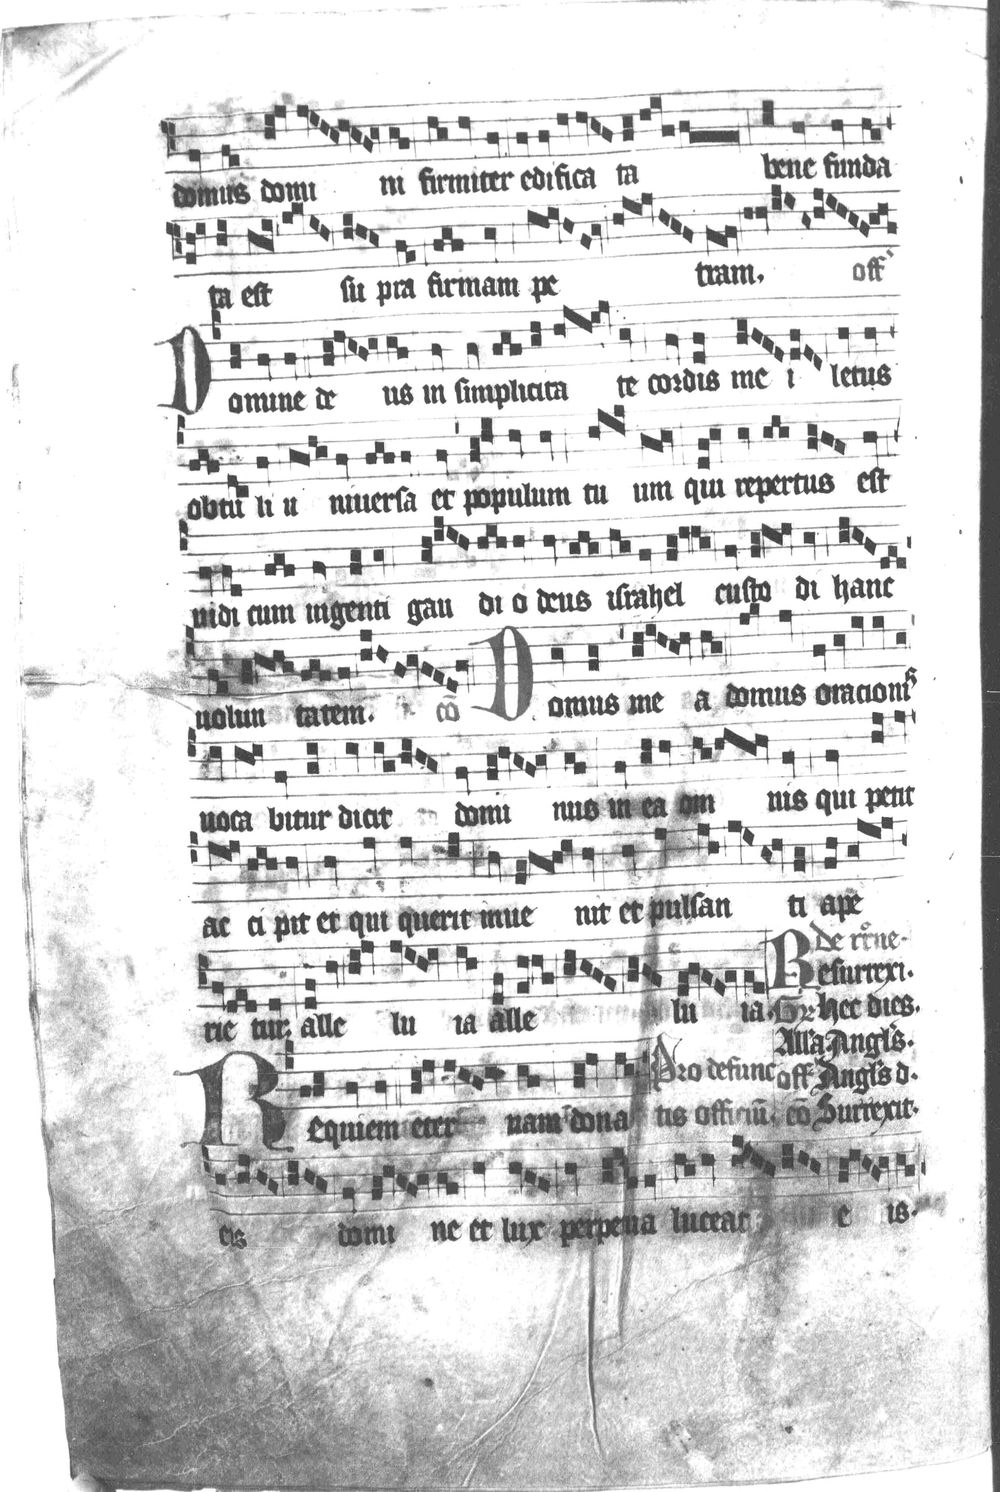 domus domi ni firmiter edifica ta bene funda
ta est su pra firmam pe tram. off
Domine de us in simplicita te cordis me i letus
obtu li u niuersa et populum tu um qui repertus est
uidi cum ingenti gau di o deus israhel custo di hanc
uolun tatem. co Domus me a domus oracionis
uoca bitur dicit domi nus in ea om nis qui petit
ac ci pit et qui querit inue nit et pulsan ti ape
rie tur. alle lu ia alle lu ia.
de rr̄ne.
Resurrexi.
Gr hec dies.
Alla Angls.
off Angls d.
cō Surrexit.
Pro defunc
tis officiū.
Requiem eter nam dona
eis domi ne et lux perpetua luceat e is.